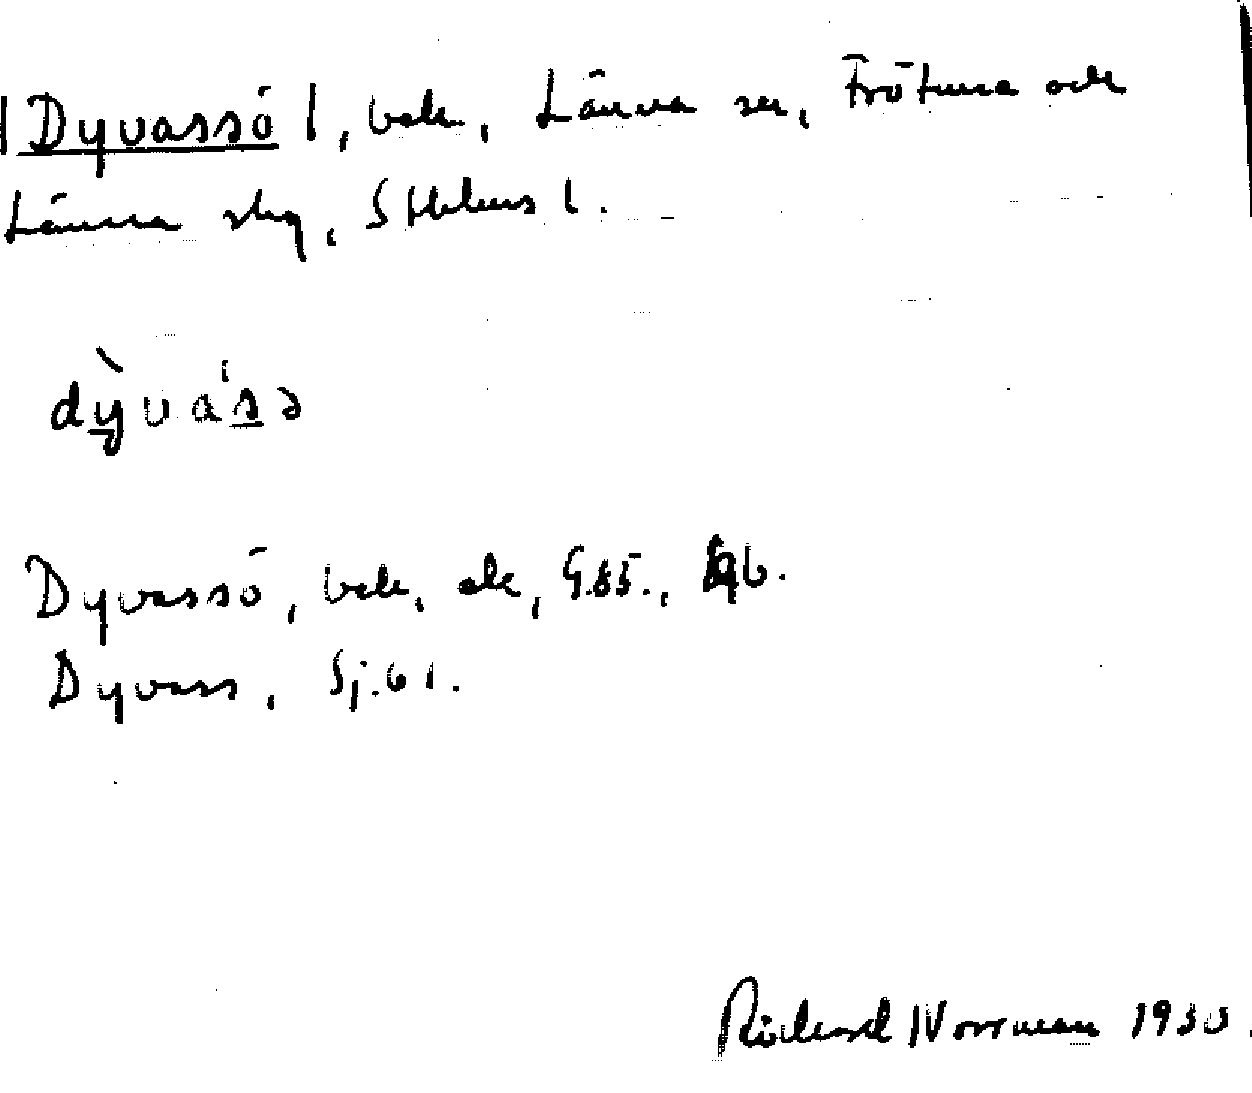 |Dyvassö|, vik, Länna sn, Frötuna och
Länna skg, Sthlms l.
dỳ̖vásə
Dyvassö, vik, ek, G.55.,
Dyvass, Sj.61.
Rickard Norrman 1930.